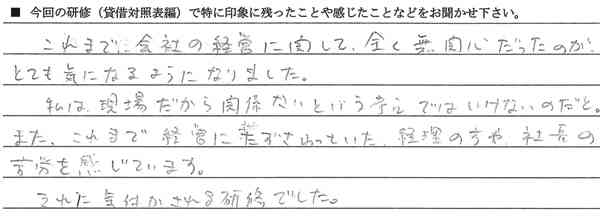 ■ 今回の研修（貸借対照表編）で特に印象に残ったことや感じたことなどをお聞かせ下さい。
これまで会社の経営に関して、全く無関心だったのが、
とても気になるようになりました。
私は、現場だから関係ないという考えではいけないのだと。
また、これまで経営にたずさわっていた、経理の方や、社長の
苦労を感じています。
それに気付かされる研修でした。